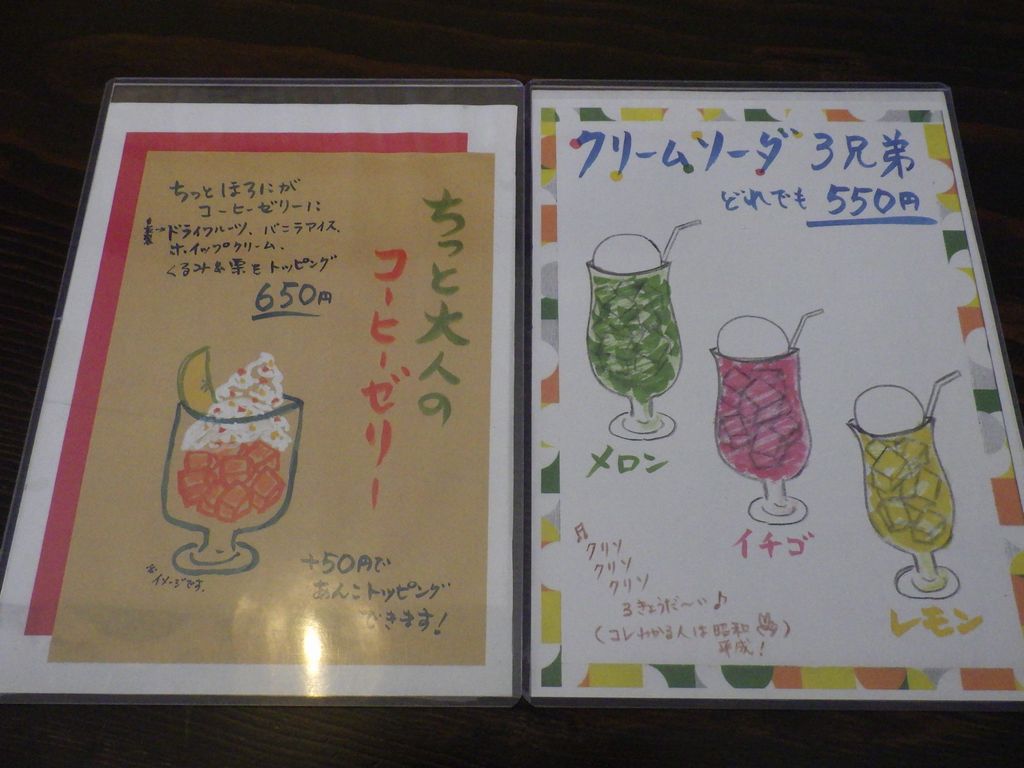 ちっと大人の
コーヒーゼリー
ちっとほろにが
コーヒーゼリーに
ドライフルーツ、バニラアイス、
ホイップクリーム、
くるみ&栗をトッピング
650円
※イメージです。
+50円で
あんこトッピング
できます!
クリームソーダ 3兄弟
どれでも 550円
メロン
イチゴ
レモン
♬クリソ
クリソ
クリソ
3きょうだ〜い♪
(コレわかる人は昭和
平成!)